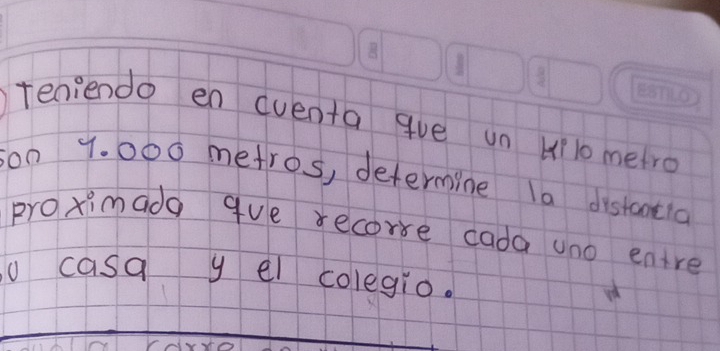 Teniendo en cuenta que un Kilometro
son 1.000 metros, determine la distancia
proximada que recorre cada uno entre
u casa y el colegio.
ESTILO